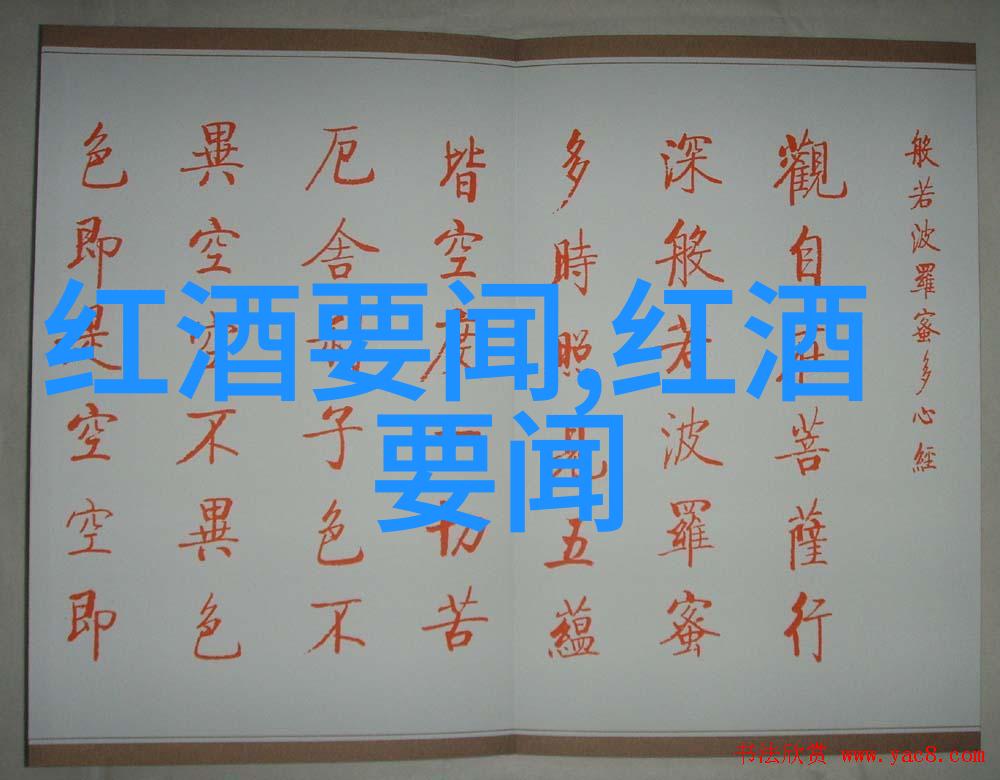 般若波羅蜜多心經
觀自在菩薩行
深般若波羅蜜
多時照見五蘊
皆空度一切苦
厄舍利子色不
異空空不異色
色即是空空即
红酒要闻,红酒
要闻
书法欣赏 www.yac8.com